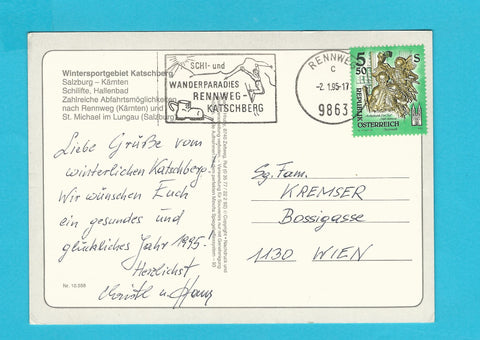 Wintersportgebiet Katschberg
Salzburg – Kärnten
Schilifte, Hallenbad
Zahlreiche Abfahrtsmöglichkeiten
nach Rennweg (Kärnten) und
St. Michael im Lungau (Salzburg)
SCHI- und
WANDERPARADIES
RENNWEG-
KATSCHBERG
RENNWEG
c
-2.1.95-17
9863
5 S
50
REPUBLIK
ÖSTERREICH
Liebe Grüße vom
winterlichen Katschberg!
Wir wünschen Euch
ein gesundes und
glückliches Jahr 1995!
Herzlichst
Christl u. Hans
Nr. 10.558
Sg. Fam.
KREMSER
Bossigasse
1130 WIEN